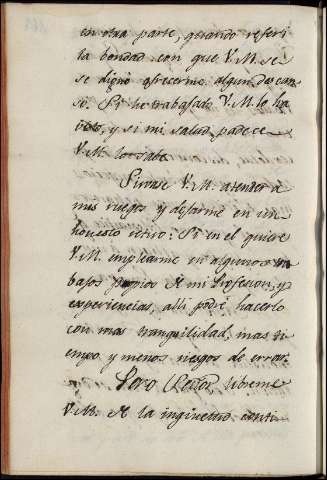 en otra parte, quando referi
la bondad con que V.M. se
se dignó ofrecerme algun descan-
so. Si he trabajado V.M. lo ha
visto, y si mi salud padece
V.M. lo sabe.
Sirvase V.M. atender a
mis ruegos y dejarme en un
honesto retiro: Si en el quiere
V.M. emplearme en algunos tra
bajos propios de mi Profesion, y
experiencias, alli podré hacerlo
con mas tranquilidad, mas ti
empo y menos riesgos de errar.
Pero Señor libreme
V.M. de la inquietud conti